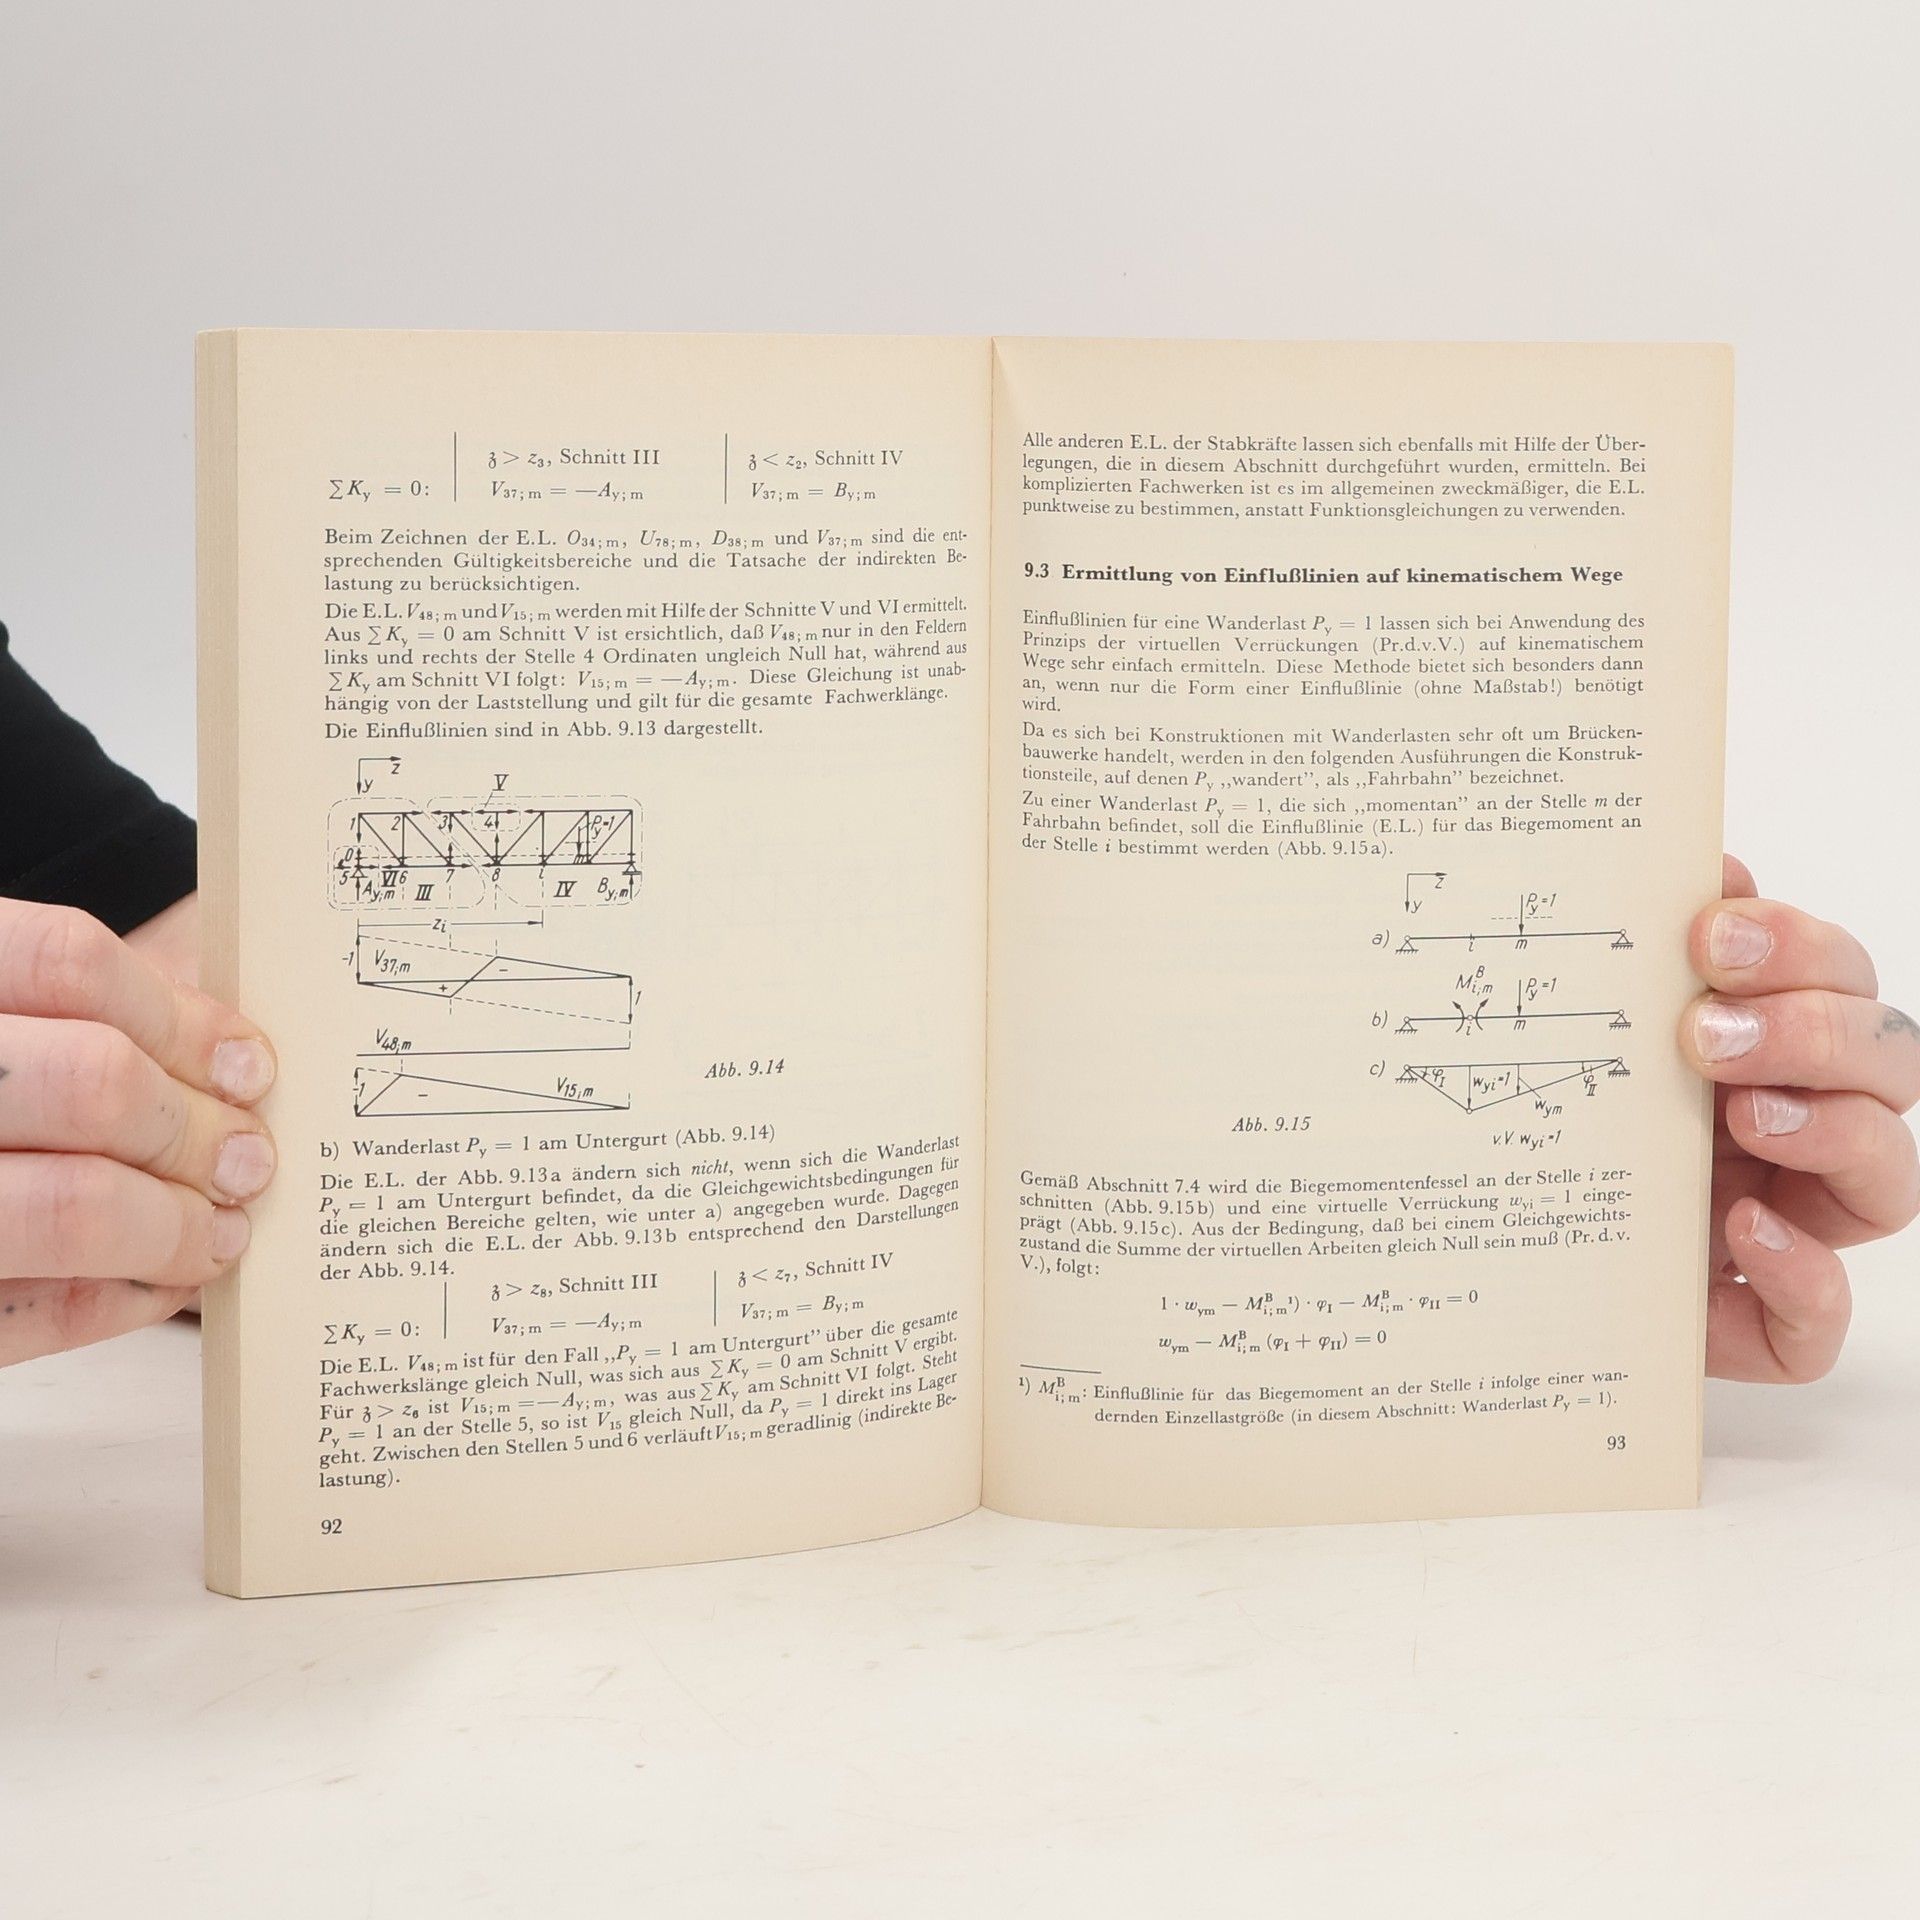 𝔷 > z₃, Schnitt III
𝔷 < z₂, Schnitt IV
∑Kᵧ = 0:
V₃₇; ₘ = —Aᵧ; ₘ
V₃₇; ₘ = Bᵧ; ₘ
Beim Zeichnen der E.L. O₃₄; ₘ, U₇₈; ₘ, D₃₈; ₘ und V₃₇; ₘ sind die ent-
sprechenden Gültigkeitsbereiche und die Tatsache der indirekten Be-
lastung zu berücksichtigen.
Die E.L. V₄₈; ₘ und V₁₅; ₘ werden mit Hilfe der Schnitte V und VI ermittelt.
Aus ∑Kᵧ = 0 am Schnitt V ist ersichtlich, daß V₄₈; ₘ nur in den Feldern
links und rechts der Stelle 4 Ordinaten ungleich Null hat, während aus
∑Kᵧ am Schnitt VI folgt: V₁₅; ₘ = —Aᵧ; ₘ. Diese Gleichung ist unab-
hängig von der Laststellung und gilt für die gesamte Fachwerklänge.
Die Einflußlinien sind in Abb. 9.13 dargestellt.
z
y
V
1 2 3 4 Pᵧ=1
0
5 VI 6 7 8 i m
Aᵧ;ₘ III IV Bᵧ;ₘ
zᵢ
-1 V₃₇;ₘ
+ − 1
V₄₈;ₘ
-1 − V₁₅;ₘ
Abb. 9.14
b) Wanderlast Pᵧ = 1 am Untergurt (Abb. 9.14)
Die E.L. der Abb. 9.13a ändern sich nicht, wenn sich die Wanderlast
Pᵧ = 1 am Untergurt befindet, da die Gleichgewichtsbedingungen für
die gleichen Bereiche gelten, wie unter a) angegeben wurde. Dagegen
ändern sich die E.L. der Abb. 9.13b entsprechend den Darstellungen
der Abb. 9.14.
𝔷 > z₈, Schnitt III
𝔷 < z₇, Schnitt IV
∑Kᵧ = 0:
V₃₇; ₘ = —Aᵧ; ₘ
V₃₇; ₘ = Bᵧ; ₘ
Die E.L. V₄₈; ₘ ist für den Fall ,,Pᵧ = 1 am Untergurt” über die gesamte
Fachwerkslänge gleich Null, was sich aus ∑Kᵧ = 0 am Schnitt V ergibt.
Für 𝔷 > z₆ ist V₁₅; ₘ = —Aᵧ; ₘ, was aus ∑Kᵧ am Schnitt VI folgt. Steht
Pᵧ = 1 an der Stelle 5, so ist V₁₅ gleich Null, da Pᵧ = 1 direkt ins Lager
geht. Zwischen den Stellen 5 und 6 verläuft V₁₅; ₘ geradlinig (indirekte Be-
lastung).
92
Alle anderen E.L. der Stabkräfte lassen sich ebenfalls mit Hilfe der Über-
legungen, die in diesem Abschnitt durchgeführt wurden, ermitteln. Bei
komplizierten Fachwerken ist es im allgemeinen zweckmäßiger, die E.L.
punktweise zu bestimmen, anstatt Funktionsgleichungen zu verwenden.
9.3 Ermittlung von Einflußlinien auf kinematischem Wege
Einflußlinien für eine Wanderlast Pᵧ = 1 lassen sich bei Anwendung des
Prinzips der virtuellen Verrückungen (Pr.d.v.V.) auf kinematischem
Wege sehr einfach ermitteln. Diese Methode bietet sich besonders dann
an, wenn nur die Form einer Einflußlinie (ohne Maßstab!) benötigt
wird.
Da es sich bei Konstruktionen mit Wanderlasten sehr oft um Brücken-
bauwerke handelt, werden in den folgenden Ausführungen die Konstruk-
tionsteile, auf denen Pᵧ ,,wandert”, als ,,Fahrbahn” bezeichnet.
Zu einer Wanderlast Pᵧ = 1, die sich ,,momentan” an der Stelle m der
Fahrbahn befindet, soll die Einflußlinie (E.L.) für das Biegemoment an
der Stelle i bestimmt werden (Abb. 9.15a).
z
y
Pᵧ=1
a) i m
Mᴮᵢ;ₘ Pᵧ=1
b) i m
c) φI wyi=1 φII
wym
v.V. wyi=1
Abb. 9.15
Gemäß Abschnitt 7.4 wird die Biegemomentenfessel an der Stelle i zer-
schnitten (Abb. 9.15b) und eine virtuelle Verrückung wyi = 1 einge-
prägt (Abb. 9.15c). Aus der Bedingung, daß bei einem Gleichgewichts-
zustand die Summe der virtuellen Arbeiten gleich Null sein muß (Pr. d. v.
V.), folgt:
1 · wym — Mᴮᵢ; ₘ¹) · φI — Mᴮᵢ; ₘ · φII = 0
wym — Mᴮᵢ; ₘ (φI + φII) = 0
¹) Mᴮᵢ; ₘ: Einflußlinie für das Biegemoment an der Stelle i infolge einer wan-
dernden Einzellastgröße (in diesem Abschnitt: Wanderlast Pᵧ = 1).
93